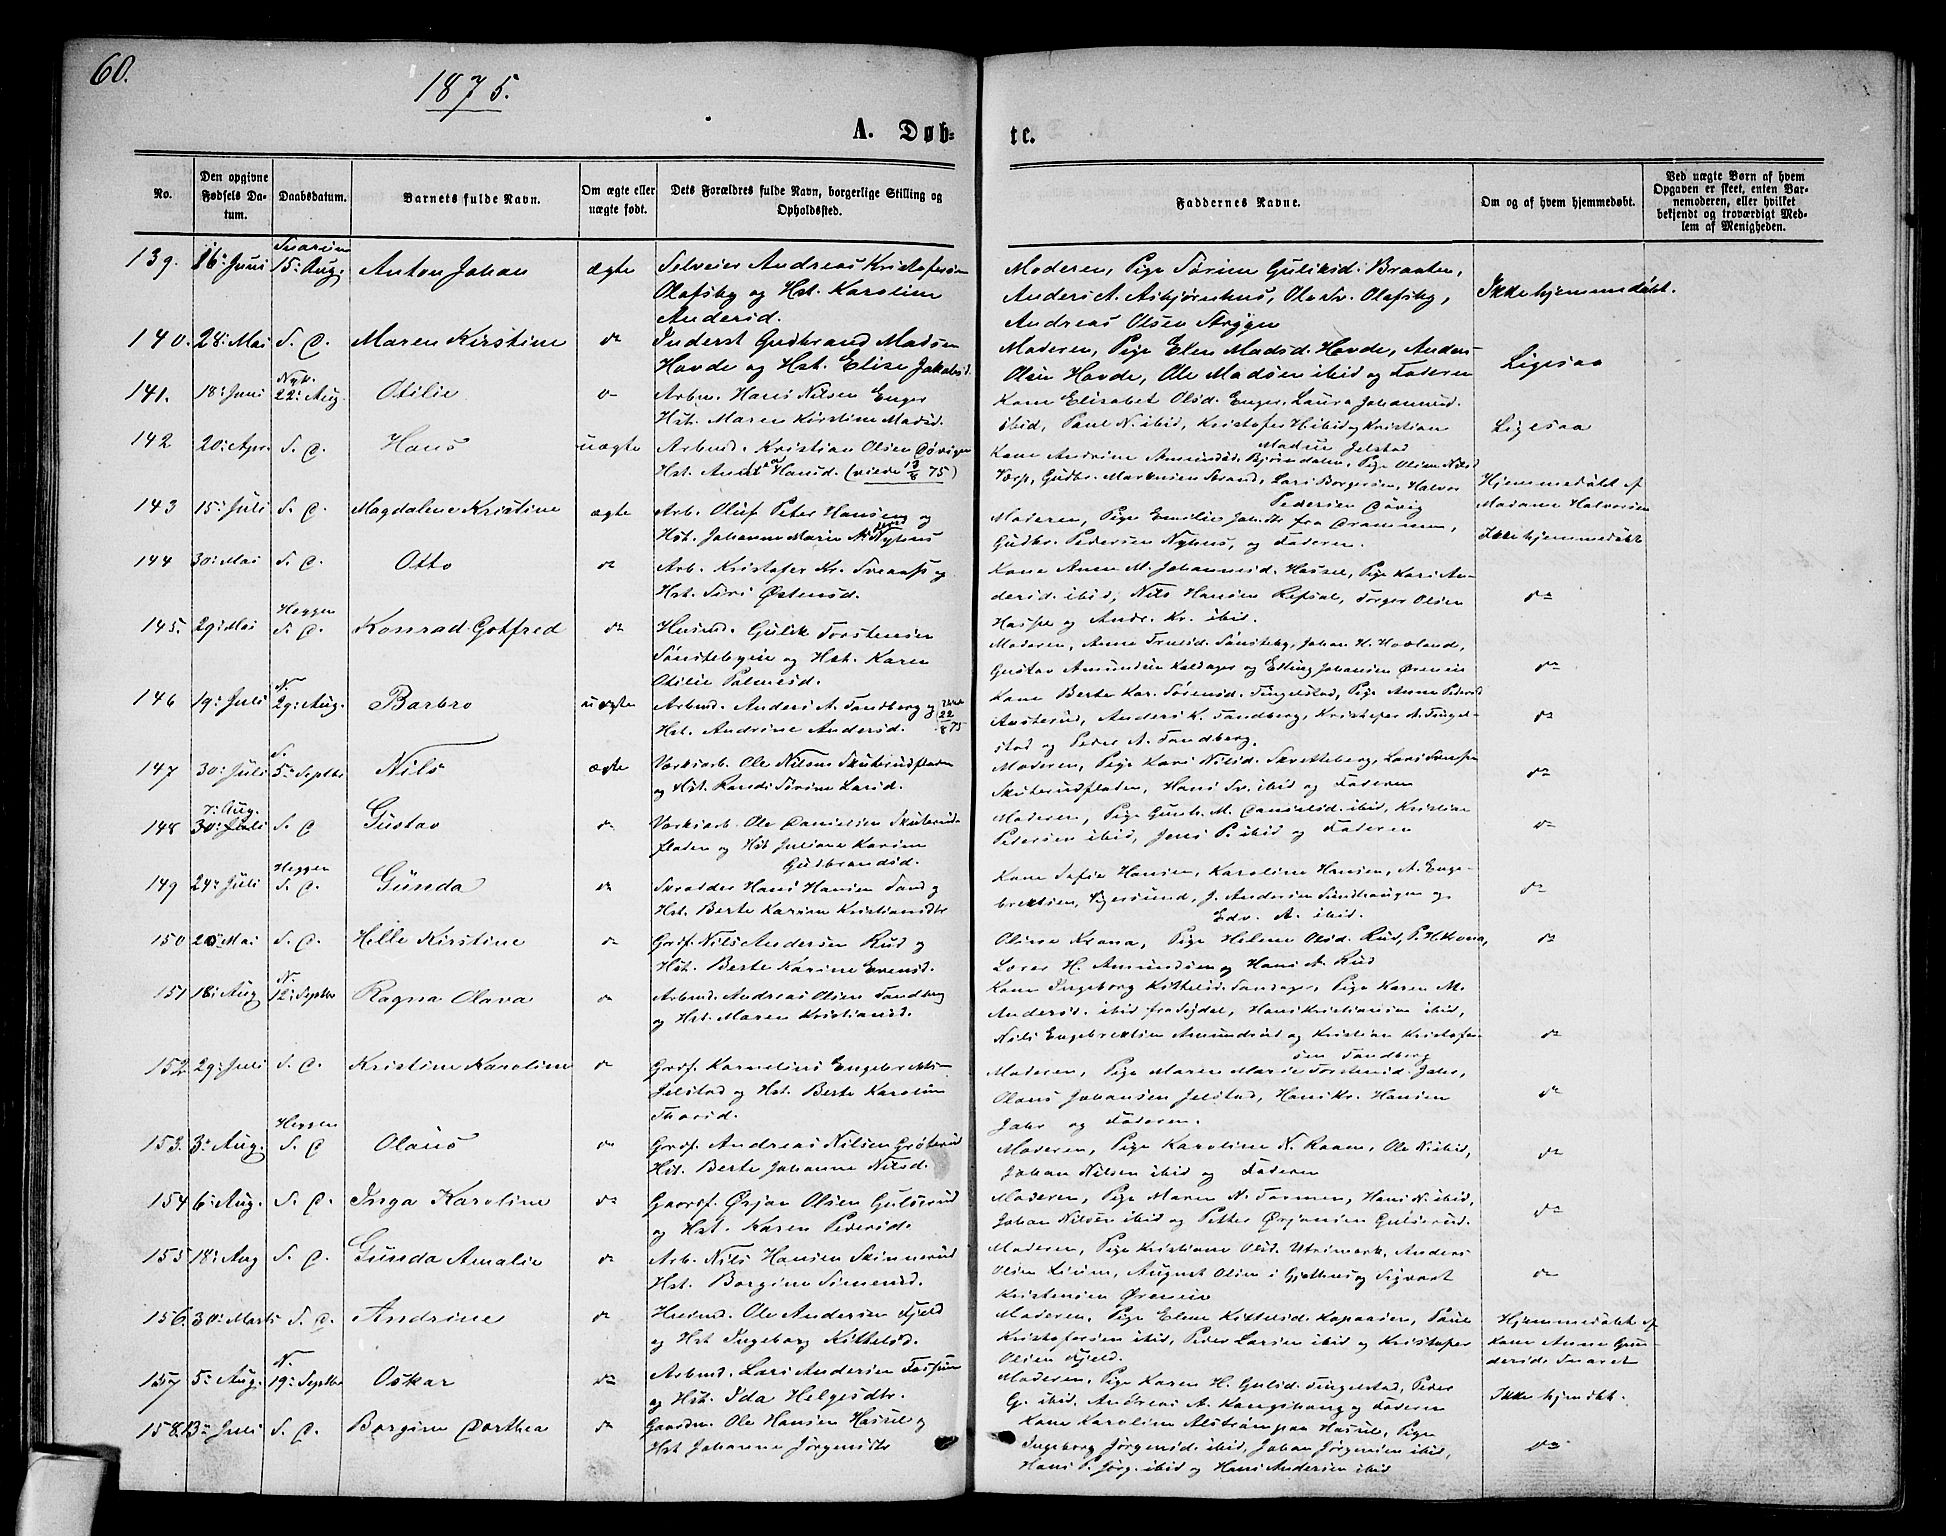 60.
1875.
A. Døb-
te.
No.
Den opgivne Fødsels Da-tum.
Daabsdatum.
Barnets fulde Navn.
Om ægte eller uægte født.
Dets Forældres fulde Navn, borgerlige Stilling og Opholdssted.
Faddernes Navne.
Om og af hvem hjemmedøbt.
Ved uægte Børn af hvem Opgaven er skeet, enten Bar-nemoderen, eller hvilket bekjendt og troværdigt Med-lem af Menigheden.
139. 16: Juni Snarum 15: Aug. Anton Johan ægte Selveier Andreas Kristofersøn
Olafsby og Hst. Karoline
Andersd.
Moderen, Pige Sørine Guliksd. Braaten,
Anders A. Asbjørnhus, Ola Sv. Olafsby,
Andreas Olsen Strygen
Ikke hjemmedøbt.
140. 28: Mai S. D. Maren Kirstine do Inderst Gudbrand Madsen
Hovde og Hst. Elise Jakobsd.
Moderen, Pige Elen Madsd. Hovde, Anders
Olsen Hovde, Ole Madsen ibid og Faderen
Ligesaa
141. 18: Juni Nyk. 22: Aug. Otilie do Arbm. Hans Nilsen Enger
Hst. Maren Kirstine Madsd.
Kone Elisabet Olsd. Enger, Laura Johannesd.
ibid, Paul N. ibid, Kristofer H. ibid og Kristian
Madsen Jelstad
Ligesaa
142 20: Apr. S. D. Hans uægte Arbmd. Kristian Olsen Døvigen
Hst. Anne Hansd. (viede 13/8 75)
Kone Andrine Amundsd. Bjørndalen, Pige Olea Nilsd
Verp, Gudbr. Markusen Strand, Lars Borgersen, Halvor
Pedersen Døvig
Hjemmedøbt af
Madame Halvorsen
143 15: Juli S. D. Magdalene Kristine ægte Arb. Oluf Peter Hansen og
Hst. Johanne Marie Nilsd Nyhus
Moderen, Pige Emilie Joh.dtr fra Drammen,
Gudbr. Pedersen Nyhus, og Faderen.
Ikke hjemmedøbt
144 30: Mai S. D. Otto do Arb. Kristofer Kr. Sveaas og
Hst. Siri Østensd.
Kone Anne M. Johannesd. Hassel, Pige Kari An-
dersd. ibid, Nils Hansen Refsal, Torger Olsen
Haspe og Andr. Kr. ibid.
do
145. 29: Mai Heggen S. D. Konrad Gotfred do Husmd. Gulik Torstensen
Sønstebyeie og Hst. Karen
Otilie Palmesd.
Moderen, Anne Trulsd. Sønsteby, Johan H. Hovland,
Gustav Amundsen Kaldager og Edling Johansen Øreneie
do
146 19: Juli N. 29: Aug. Barbro uægte Arbmd. Anders A. Tandberg og viede
Hst. Andrine Andersd. 22/8 75
Kone Berte Kar. Torsensd. Tingelstad, Pige Anne Pedersd
Austerud, Anders K. Tandberg, Kristofer A. Tingel-
stad og Peder A. Tandberg.
do
147 30: Juli S. 5: Septbr. Nils ægte Verksarb. Ole Nilsen Skuterudflaten
og Hst. Randi Sørine Larsd.
Moderen, Pige Kari Nilsd. Skretteberg, Lars Svensen
Skuterudflaten, Hans Sv. ibid og Faderen
do
148 7: Aug. 30: Juli S. D Gustav do Verksarb. Ole Danielsen Skuterud-
flaten og Hst Juliane Karine
Gudbrandsd.
Moderen, Pige Gunh. M. Danielsd. ibid, Kristian
Pedersen ibid, Jens P. ibid og Faderen
do
149 24: Juli Heggen S. D. Günda do Skrædder Hans Hansen Sand og
Hst. Berte Karine Kristiansdtr
Kone Sofie Hansen, Karoline Hansen, A. Enge-
brektsen, Pigersund, J. Andersen Sundhaugen og
Edv. A. ibid.
do
150 20: Mai S. D. Helle Kirstine do Grdf. Nils Andersen Rud og
Hst. Berte Karine Evensd.
Olinea Krona, Pige Helene Olsd. Rud, P. H. Krona,
Lorer H. Amundsen og Hans A. Rud
do
151 18: Aug N. 12: Septbr Ragna Olava do Arbmd. Andreas Olsen Tandberg
og Hst. Maren Kristiansd.
Kone Ingeborg Kittelsd. Tandager, Pige Karen M.
Andersd. ibid fra Sigdal, Hans Kristiansen ibid,
Nils Engebrektsen Amundrud og Kristian Kristofer-
sen Tandberg
do
152 29: Juli S. D. Kristine Karoline do Grdf. Kornelius Engebrekts-
Jelstad og Hst. Berte Karoline
Thorsd.
Moderen, Pige Maren Marie Torstensd. Jahr,
Olaus Johansen Jelstad, Hans Kr. Hansen
Jahr og Faderen.
do
153. 3: Aug. Heggen S. D Olaus do Grdf. Andreas Nilsen Grøterud
Hst. Berte Johanne Nilsd.
Moderen, Pige Karoline N. Raaen, Ole N. ibid,
Johan Nilsen ibid og Faderen
do
154 6: Aug. S. D. Inga Karoline do Gaardf. Ørjan Olsen Gulsrud
og Hst. Karen Pedersd.
Moderen, Pige Maren N. Formen, Hans N. ibid,
Johan Nilsen ibid og Petter Ørjansen Gulsrud.
do
155 18: Aug S. D. Günda Amalie do Arb. Nils Hansen Skinnerud
Hst. Borgine Simensd.
Moderen, Pige Kristiane Olsd. Utrimark, Anders
Olsen Lium, August Olsen i Gjethus og Sigvart
Kristensen Øreneie
do
156. 30: Marts S. D. Andrine do Husmd. Ole Andersen Fjeld
og Hst Ingeborg Kittelsd.
Moderen, Pige Elene Kittelsd. Kopaasen, Paul
Kristofersen ibid, Peder Larsen ibid og Kristofer
Olsen Fjeld.
Hjemmedøbt af
Kone Anne Gun-
dersd. Svaret
157 5: Aug. N. 19: Septbr Oskar do Arbmd. Lars Andersen Fossum
og Hst. Ida Helgesdtr.
Moderen, Pige Karen H. Gulsd. Tingelstad, Peder
G. ibid, Andreas A. Kongsborg og Faderen
Ikke hjemdbt.
158. 13: Juli S. D. Borgine Dorthea do Gaardm. Ole Hansen Hassel og
Hst Johanne Jørgensdtr
Kone Karoline Alstrøm paa Hassel, Pige
Ingeborg Jørgensd. ibid, Johan Jørgensen ibid,
Hans P. Jørg. ibid og Hans Andersen ibid
do